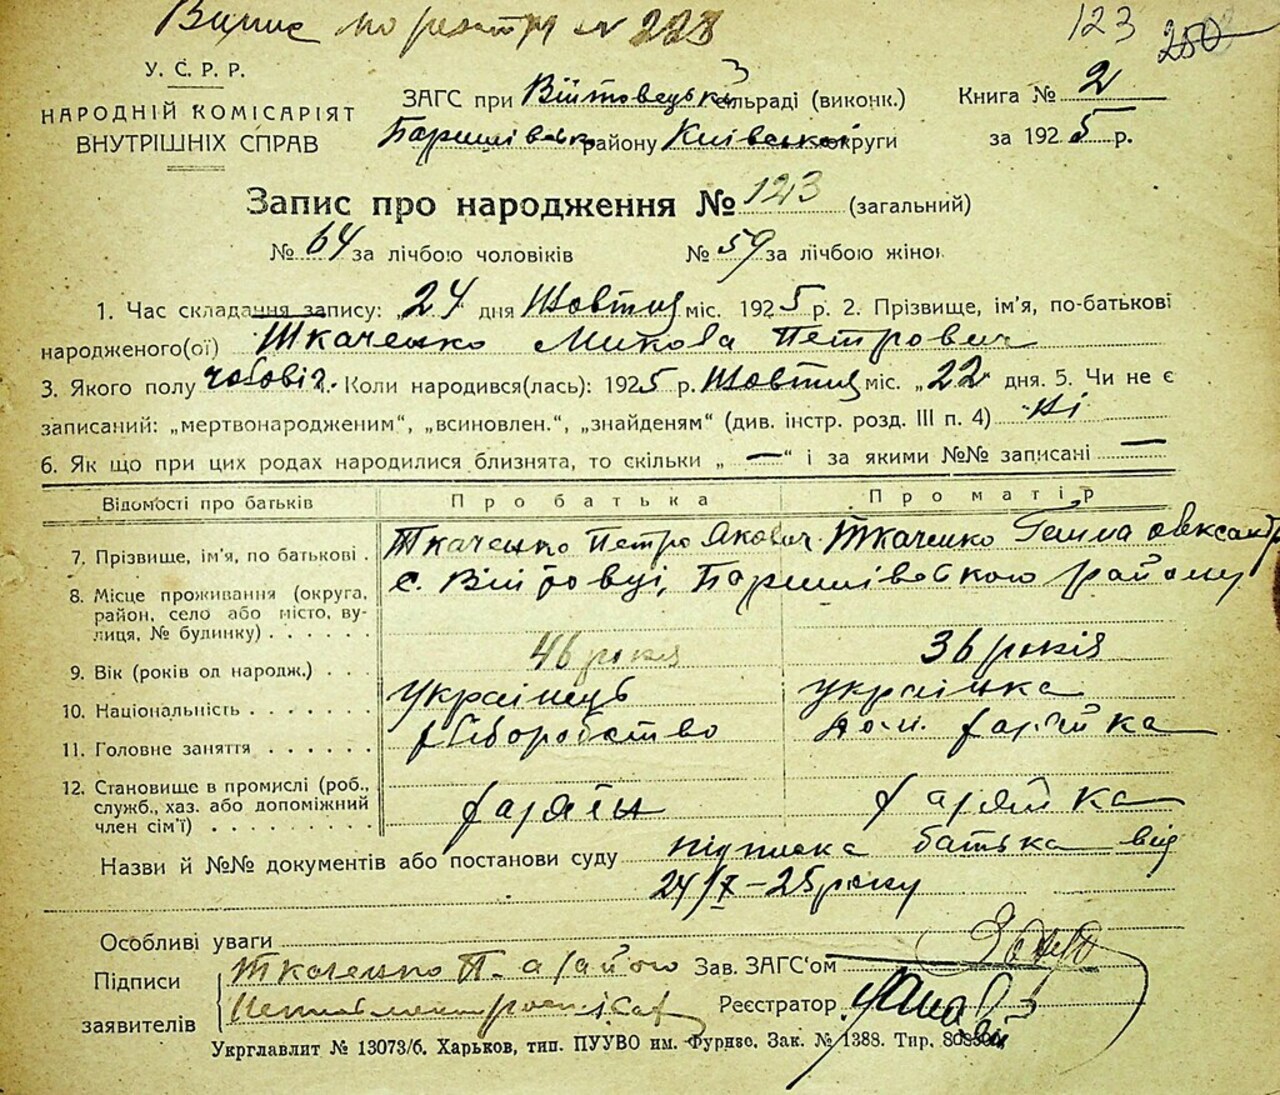 Випис по реєстру № 228
123 250
У. С. Р. Р.
НАРОДНІЙ КОМІСАРІЯТ
ВНУТРІШНІХ СПРАВ
ЗАГС при Війтовецькій сельраді (виконк.)
Баришівськ. району Київської округи
Книга № 2
за 1925 р.
Запис про народження № 123 (загальний)
№ 64 за лічбою чоловіків № 59 за лічбою жінок
1. Час складання запису: „24" дня Жовтня міс. 1925 р. 2. Прізвище, ім'я, по-батькові
народженого(ої) Ткаченко Микола Петрович
3. Якого полу чоловіч. Коли народився(лась): 1925 р. Жовтня міс. „22" дня. 5. Чи не є
записаний: „мертвонародженим", „всиновлен.", „знайденям" (див. інстр. розд. III п. 4) Ні
6. Як що при цих родах народилися близнята, то скільки „ — " і за якими №№ записані —
Відомості про батьків Про батька Про матір
7. Прізвище, ім'я, по батькові . Ткаченко Петро Якович Ткаченко Ганна Олександр
8. Місце проживання (округа, район, село або місто, вулиця, № будинку) . . . . . . с. Війтовці, Баришівського району
9. Вік (років од народж.) . . . 46 років 36 років
10. Національність . . . . . . . Українець українка
11. Головне заняття . . . . . . хліборобство дом. хазяйка
12. Становище в промислі (роб., служб., хаз. або допоміжний член сім'ї) . . . . . . . . хазяїн хазяйка
Назви й №№ документів або постанови суду підписка батька від
24/X – 25 року
Особливі уваги
Підписи
заявителів
Ткаченко П. а
Зав. ЗАГС'ом
Реєстратор
Укрглавлит № 13073/б. Харьков, тип. ПУУВО им. Фрунзе. Зак. № 1388. Тир.